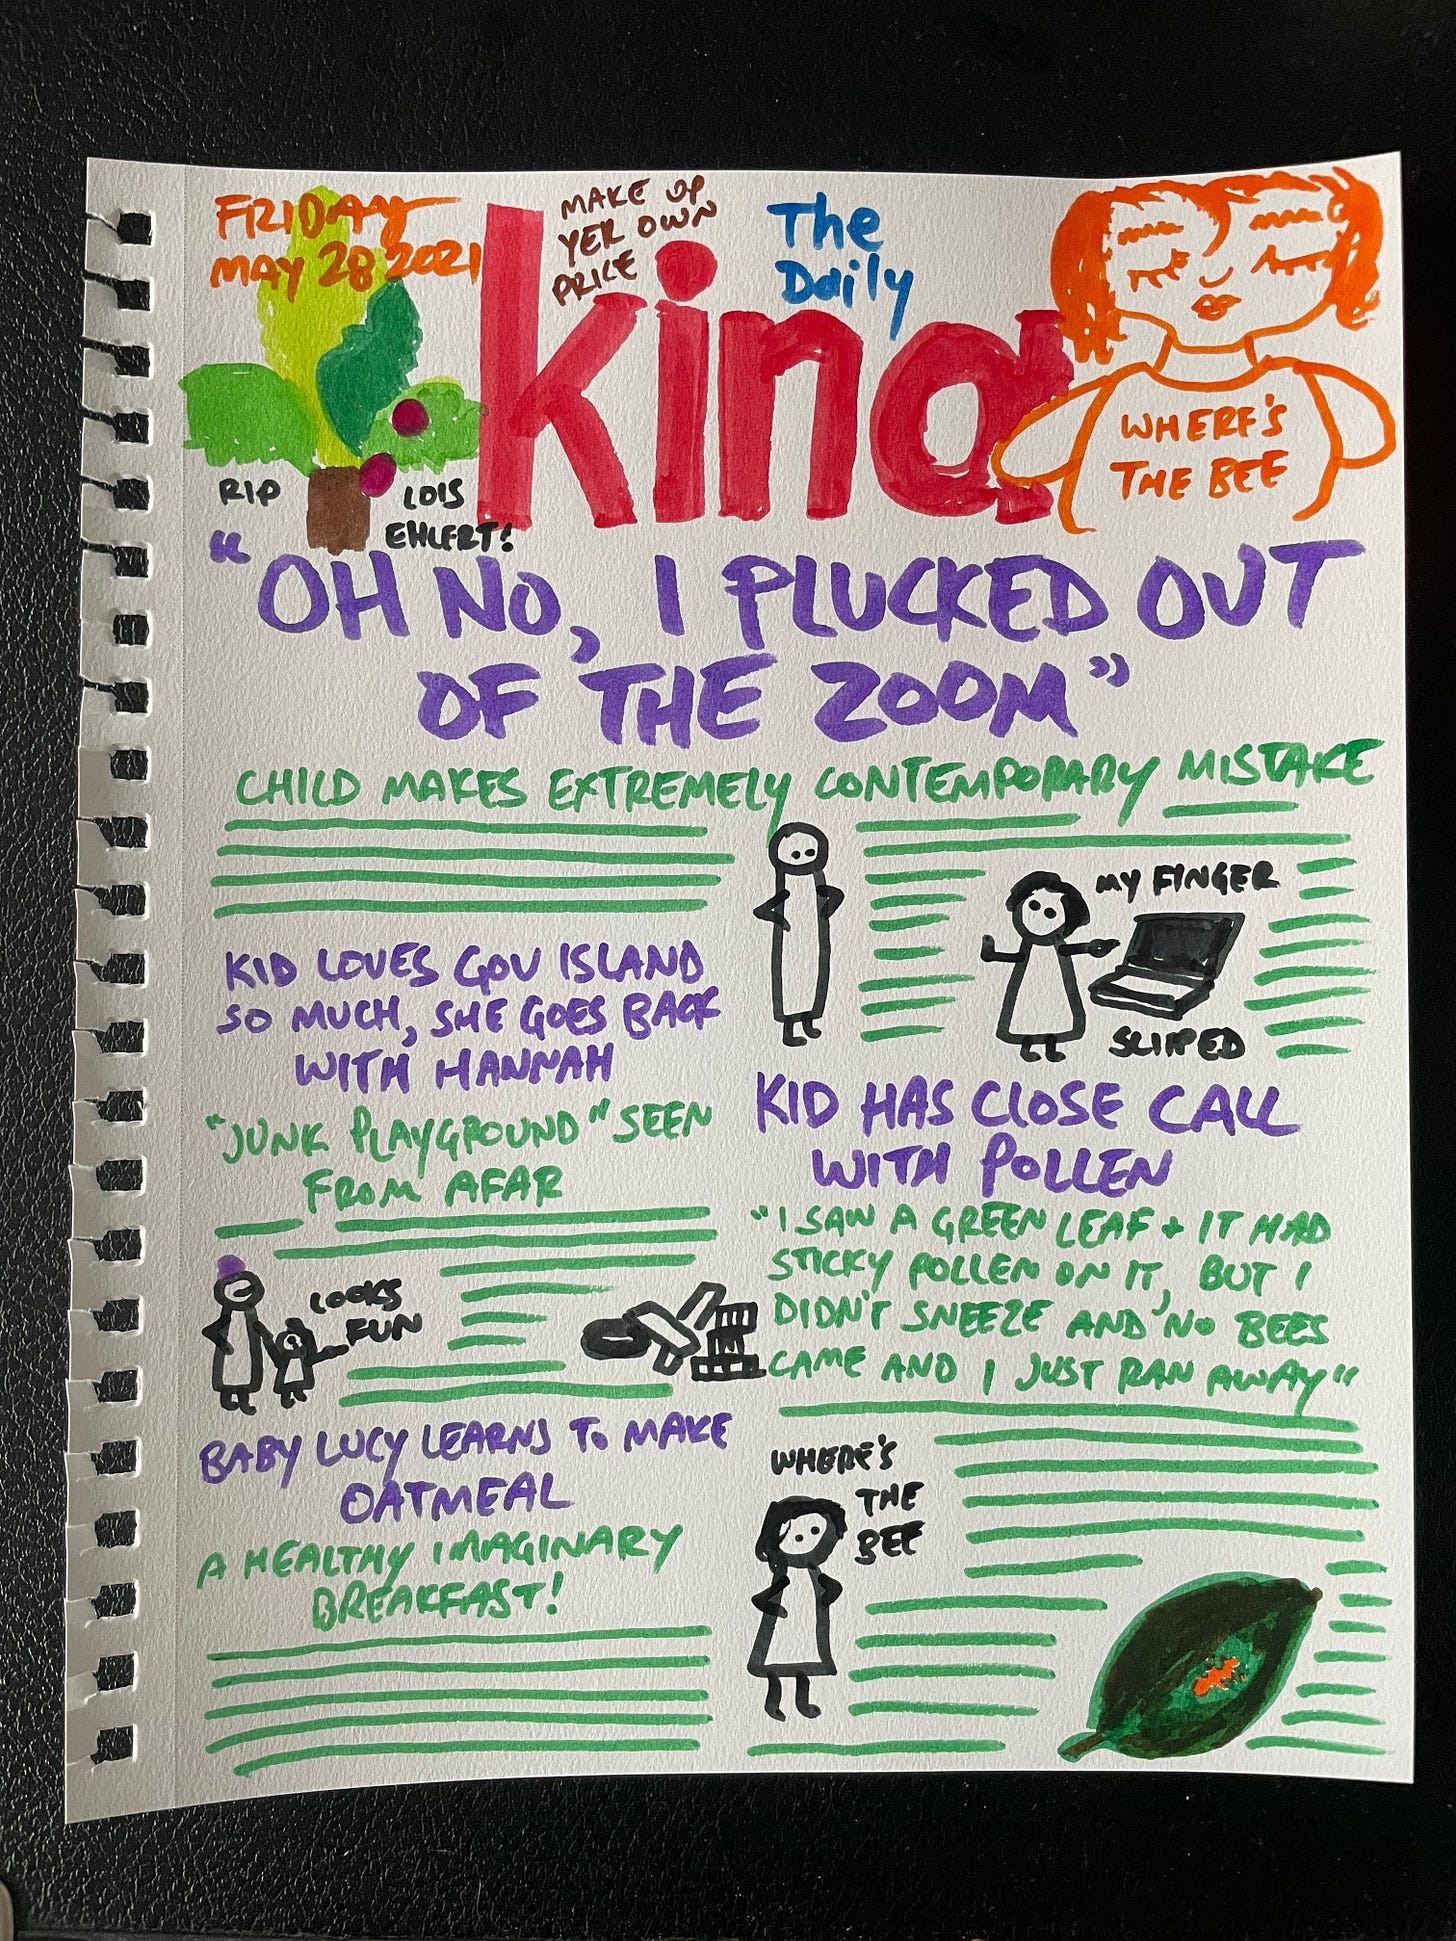 FRIDAY
MAY 28 2021
MAKE UP
YER OWN
PRICE
The
Daily
kind
WHERE'S
THE BEE
RIP
LOIS
EHLERT!
"OH NO, I PLUCKED OUT
OF THE ZOOM"
CHILD MAKES EXTREMELY CONTEMPORARY MISTAKE
MY FINGER
SLIPPED
KID LOVES GOV ISLAND
SO MUCH, SHE GOES BACK
WITH HANNAH
"JUNK PLAYGROUND" SEEN
FROM AFAR
LOOKS
FUN
BABY LUCY LEARNS TO MAKE
OATMEAL
A HEALTHY IMAGINARY
BREAKFAST!
KID HAS CLOSE CALL
WITH POLLEN
"I SAW A GREEN LEAF + IT HAD
STICKY POLLEN ON IT, BUT I
DIDN'T SNEEZE AND NO BEES
CAME AND I JUST RAN AWAY"
WHERE'S
THE
BEE